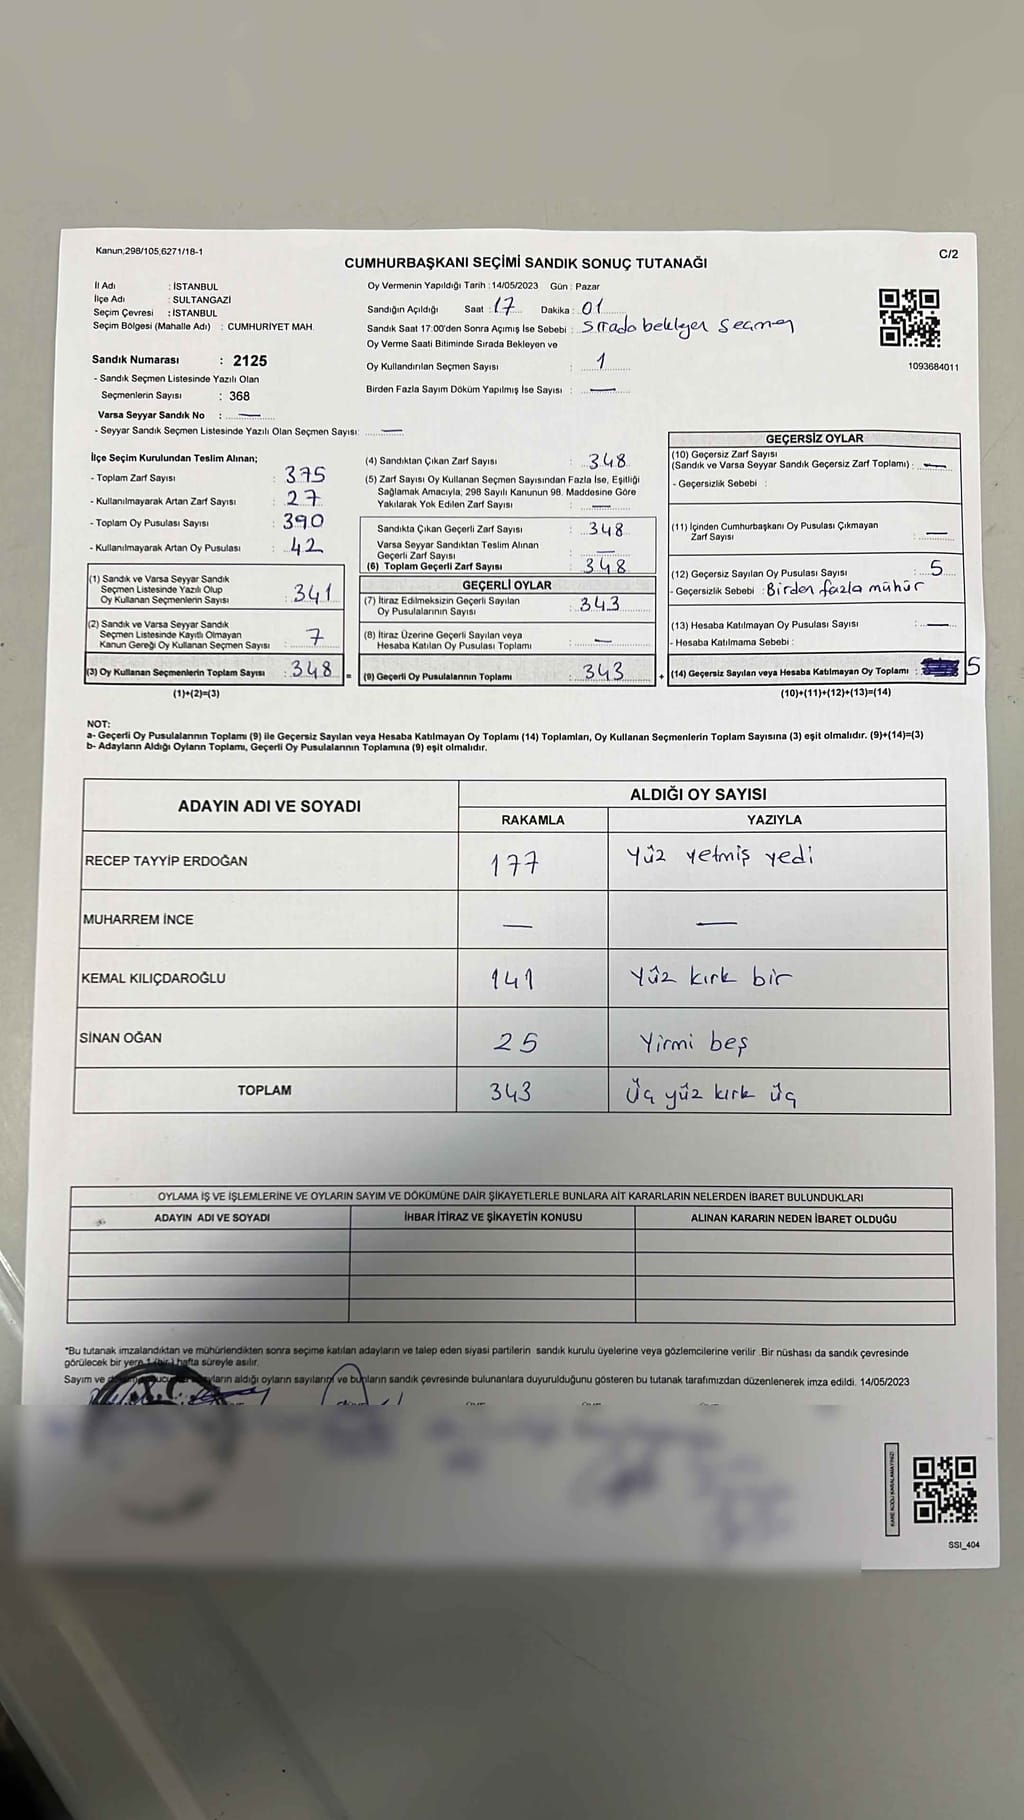 Kanun,298/105,6271/18-1
C/2
CUMHURBAŞKANI SEÇİMİ SANDIK SONUÇ TUTANAĞI
İl Adı : İSTANBUL
İlçe Adı : SULTANGAZİ
Seçim Çevresi : İSTANBUL
Seçim Bölgesi (Mahalle Adı) : CUMHURİYET MAH.
Sandık Numarası : 2125
- Sandık Seçmen Listesinde Yazılı Olan
Seçmenlerin Sayısı : 368
Varsa Seyyar Sandık No : —
- Seyyar Sandık Seçmen Listesinde Yazılı Olan Seçmen Sayısı: —
Oy Vermenin Yapıldığı Tarih :14/05/2023 Gün : Pazar
Sandığın Açıldığı Saat : 17 Dakika : 01
Sandık Saat 17:00'den Sonra Açımış İse Sebebi : Sırada bekleyen seçmen
Oy Verme Saati Bitiminde Sırada Bekleyen ve
Oy Kullandırılan Seçmen Sayısı : 1
Birden Fazla Sayım Döküm Yapılmış İse Sayısı : —
1093684011
İlçe Seçim Kurulundan Teslim Alınan;
- Toplam Zarf Sayısı : 375
- Kullanılmayarak Artan Zarf Sayısı : 27
- Toplam Oy Pusulası Sayısı : 390
- Kullanılmayarak Artan Oy Pusulası : 42
(1) Sandık ve Varsa Seyyar Sandık
Seçmen Listesinde Yazılı Olup
Oy Kullanan Seçmenlerin Sayısı : 341
(2) Sandık ve Varsa Seyyar Sandık
Seçmen Listesinde Kayıtlı Olmayan
Kanun Gereği Oy Kullanan Seçmen Sayısı : 7
(3) Oy Kullanan Seçmenlerin Toplam Sayısı : 348 =
(1)+(2)=(3)
(4) Sandıktan Çıkan Zarf Sayısı : 348
(5) Zarf Sayısı Oy Kullanan Seçmen Sayısından Fazla İse, Eşitliği
Sağlamak Amacıyla, 298 Sayılı Kanunun 98. Maddesine Göre
Yakılarak Yok Edilen Zarf Sayısı : —
Sandıkta Çıkan Geçerli Zarf Sayısı : 348
Varsa Seyyar Sandıktan Teslim Alınan
Geçerli Zarf Sayısı : —
(6) Toplam Geçerli Zarf Sayısı : 348
GEÇERLİ OYLAR
(7) İtiraz Edilmeksizin Geçerli Sayılan
Oy Pusulalarının Sayısı : 343
(8) İtiraz Üzerine Geçerli Sayılan veya
Hesaba Katılan Oy Pusulası Toplamı : —
(9) Geçerli Oy Pusulalarının Toplamı : 343 +
GEÇERSİZ OYLAR
(10) Geçersiz Zarf Sayısı
(Sandık ve Varsa Seyyar Sandık Geçersiz Zarf Toplamı) : —
- Geçersizlik Sebebi :
(11) İçinden Cumhurbaşkanı Oy Pusulası Çıkmayan
Zarf Sayısı : —
(12) Geçersiz Sayılan Oy Pusulası Sayısı : 5
- Geçersizlik Sebebi : Birden fazla mühür
(13) Hesaba Katılmayan Oy Pusulası Sayısı : —
- Hesaba Katılmama Sebebi :
(14) Geçersiz Sayılan veya Hesaba Katılmayan Oy Toplamı : 5
(10)+(11)+(12)+(13)=(14)
NOT:
a- Geçerli Oy Pusulalarının Toplamı (9) ile Geçersiz Sayılan veya Hesaba Katılmayan Oy Toplamı (14) Toplamları, Oy Kullanan Seçmenlerin Toplam Sayısına (3) eşit olmalıdır. (9)+(14)=(3)
b- Adayların Aldığı Oyların Toplamı, Geçerli Oy Pusulalarının Toplamına (9) eşit olmalıdır.
ADAYIN ADI VE SOYADI
ALDIĞI OY SAYISI
RAKAMLA YAZIYLA
RECEP TAYYİP ERDOĞAN 177 Yüz yetmiş yedi
MUHARREM İNCE — —
KEMAL KILIÇDAROĞLU 141 Yüz kırk bir
SİNAN OĞAN 25 Yirmi beş
TOPLAM 343 Üç yüz kırk üç
OYLAMA İŞ VE İŞLEMLERİNE VE OYLARIN SAYIM VE DÖKÜMÜNE DAİR ŞİKAYETLERLE BUNLARA AİT KARARLARIN NELERDEN İBARET BULUNDUKLARI
ADAYIN ADI VE SOYADI İHBAR İTİRAZ VE ŞİKAYETİN KONUSU ALINAN KARARIN NEDEN İBARET OLDUĞU
*Bu tutanak imzalandıktan ve mühürlendikten sonra seçime katılan adayların ve talep eden siyasi partilerin sandık kurulu üyelerine veya gözlemcilerine verilir .Bir nüshası da sandık çevresinde
görülecek bir yere 1 (bir ) hafta süreyle asılır.
Sayım ve aldığı oyların sayılarını ve bunların sandık çevresinde bulunanlara duyurulduğunu gösteren bu tutanak tarafımızdan düzenlenerek imza edildi. 14/05/2023
KARE KODU KARALAMAYINIZ!
SSI_404